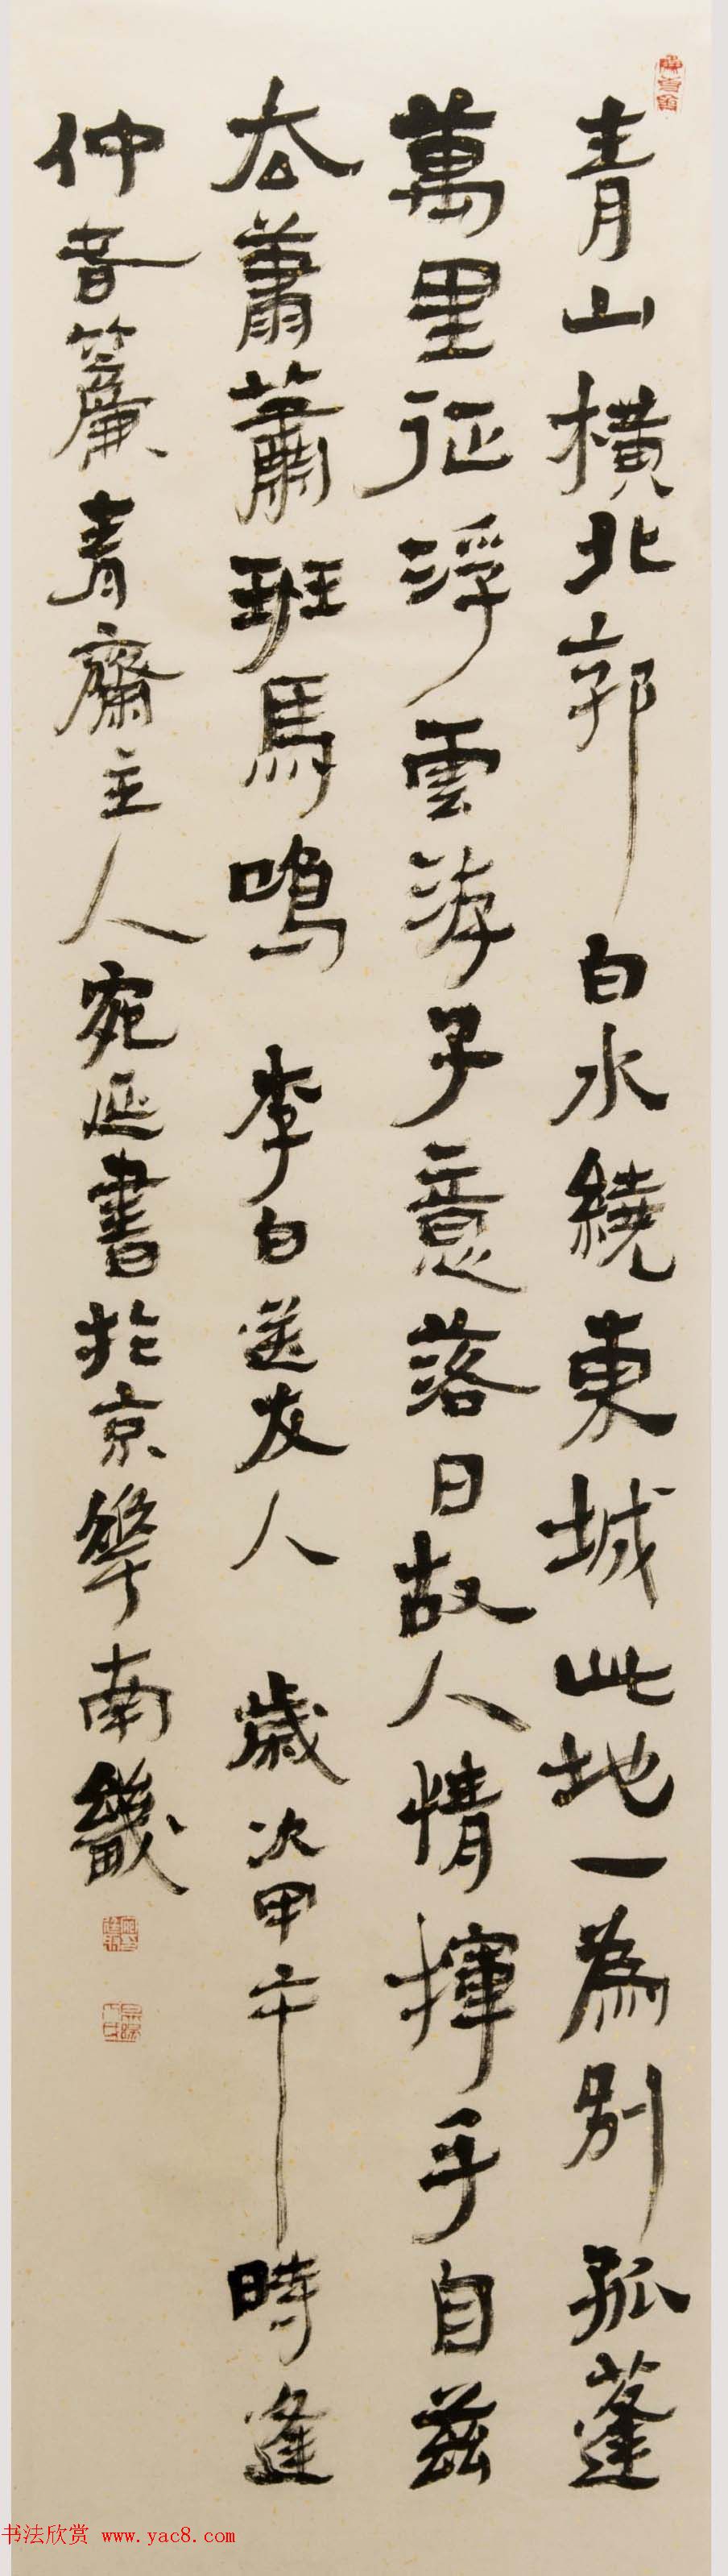 青山橫北郭白水繞東城此地一為別孤蓬
萬里征浮雲游子意落日故人情揮手自茲
去蕭蕭班馬鳴 李白送友人 歲次甲午時逢
仲春簾青齋主人宛延書於京華南畿
书法欣赏 www.yac8.com